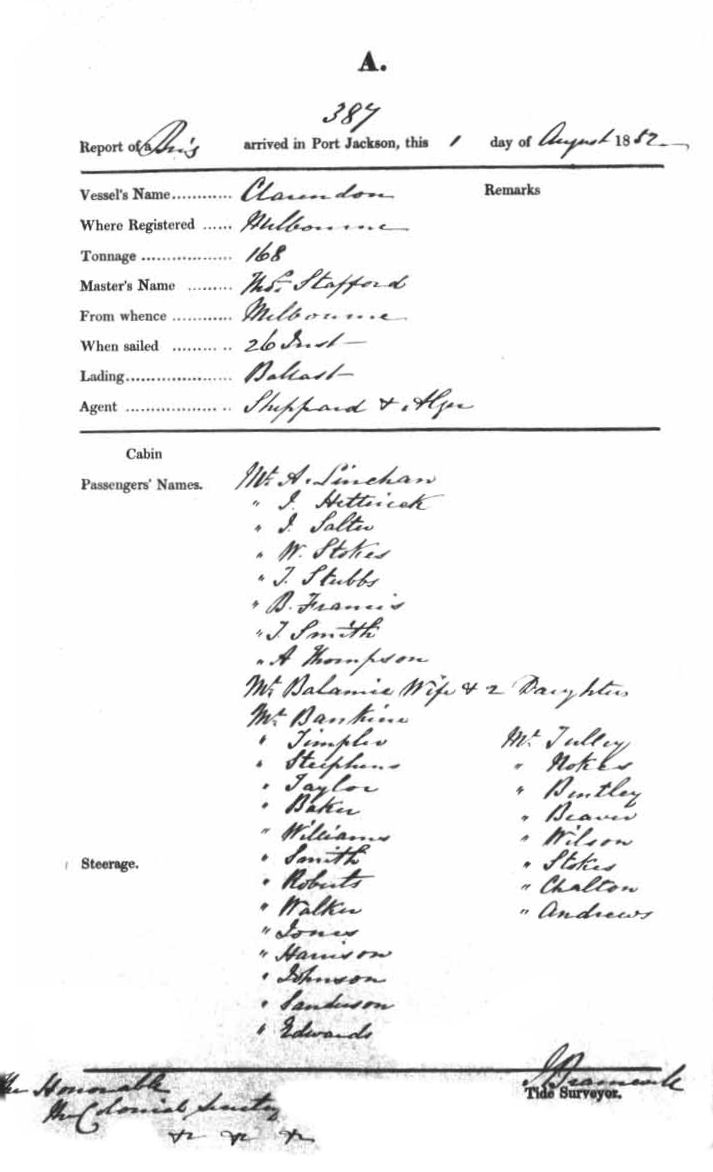 A.
387
Report of a Brig arrived in Port Jackson, this 1 day of August 1852
Vessel's Name............ Clarendon Remarks
Where Registered ...... Melbourne
Tonnage .................. 168
Master's Name ......... Thos. Stafford
From whence ............ Melbourne
When sailed ......... .. 26 Inst
Lading..................... Ballast
Agent .................. .. Sheppard & Alger
Cabin
Passengers' Names. Mr. A. Linehan
" J. Hettrick
" J. Salter
" W. Stokes
" T. Stubbs
" B. Francis
" T. Smith
" A Thompson
Mr. Balamie Wife & 2 Daughters
Mr. Bankine
" Timpler Mr. Tulley
" Steiphens " Nokes
" Taylor " Bentley
" Baker " Beaver
" Williams " Wilson
Steerage. " Smith " Stokes
" Roberts " Chalton
" Walker " Andrews
" Jones
" Harrison
" Johnson
" Sanderson
" Edwards
The Honorable
The Colonial Secretary
Tide Surveyor.